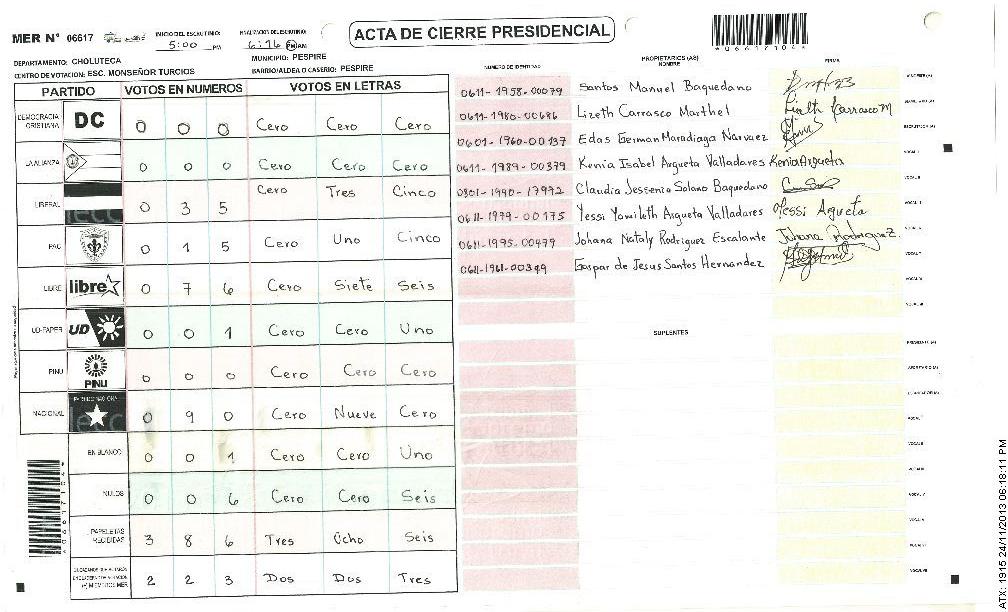 MER N° 06617
INICIO DEL ESCRUTINIO: 5:00 PM
FINALIZACION DEL ESCRUTINIO: 6:16 PM AM
ACTA DE CIERRE PRESIDENCIAL
*0661710 4*
DEPARTAMENTO: CHOLUTECA
MUNICIPIO: PESPIRE
CENTRO DE VOTACION: ESC. MONSEÑOR TURCIOS
BARRIO/ALDEA O CASERIO: PESPIRE
PARTIDO VOTOS EN NUMEROS VOTOS EN LETRAS
DEMOCRACIA CRISTIANA DC 0 0 0 Cero Cero Cero
LA ALIANZA 0 0 0 Cero Cero Cero
LIBERAL 0 3 5 Cero Tres Cinco
PAC 0 1 5 Cero Uno Cinco
LIBRE libre 0 7 6 Cero Siete Seis
UD-FAPER UD 0 0 1 Cero Cero Uno
PINU PINU 0 0 0 Cero Cero Cero
NACIONAL 0 9 0 Cero Nueve Cero
EN BLANCO 0 0 1 Cero Cero Uno
NULOS 0 0 6 Cero Cero Seis
PAPELETAS RECIBIDAS 3 8 6 Tres Ocho Seis
2 2 3 Dos Dos Tres
NUMERO DE IDENTIDAD PROPIETARIOS (AS) NOMBRE FIRMA
0611-1958-00079 Santos Manuel Baquedano
0611-1980-00686 Lizeth Carrasco Marthel Lizeth Carrasco M
0601-1960-00137 Edas German Maradiaga Narvaez
0611-1989-00379 Kenia Isabel Argueta Valladares Kenia Argueta
0801-1990-17992 Claudia Jessenia Solano Baquedano
0611-1979-00175 Yessi Yamileth Argueta Valladares Yessi Argueta
0611-1995-00479 Johana Nataly Rodriguez Escalante Johana Rodriguez.
0611-1961-00349 Gaspar de Jesus Santos Hernandez
SUPLENTES
ATX: 1915 24/11/2013 06:18:11 PM